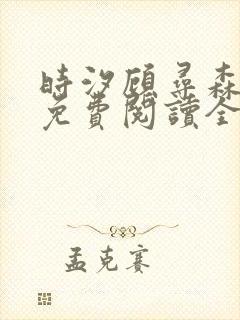 時汐顧尋森
免費閱讀全
孟克賽